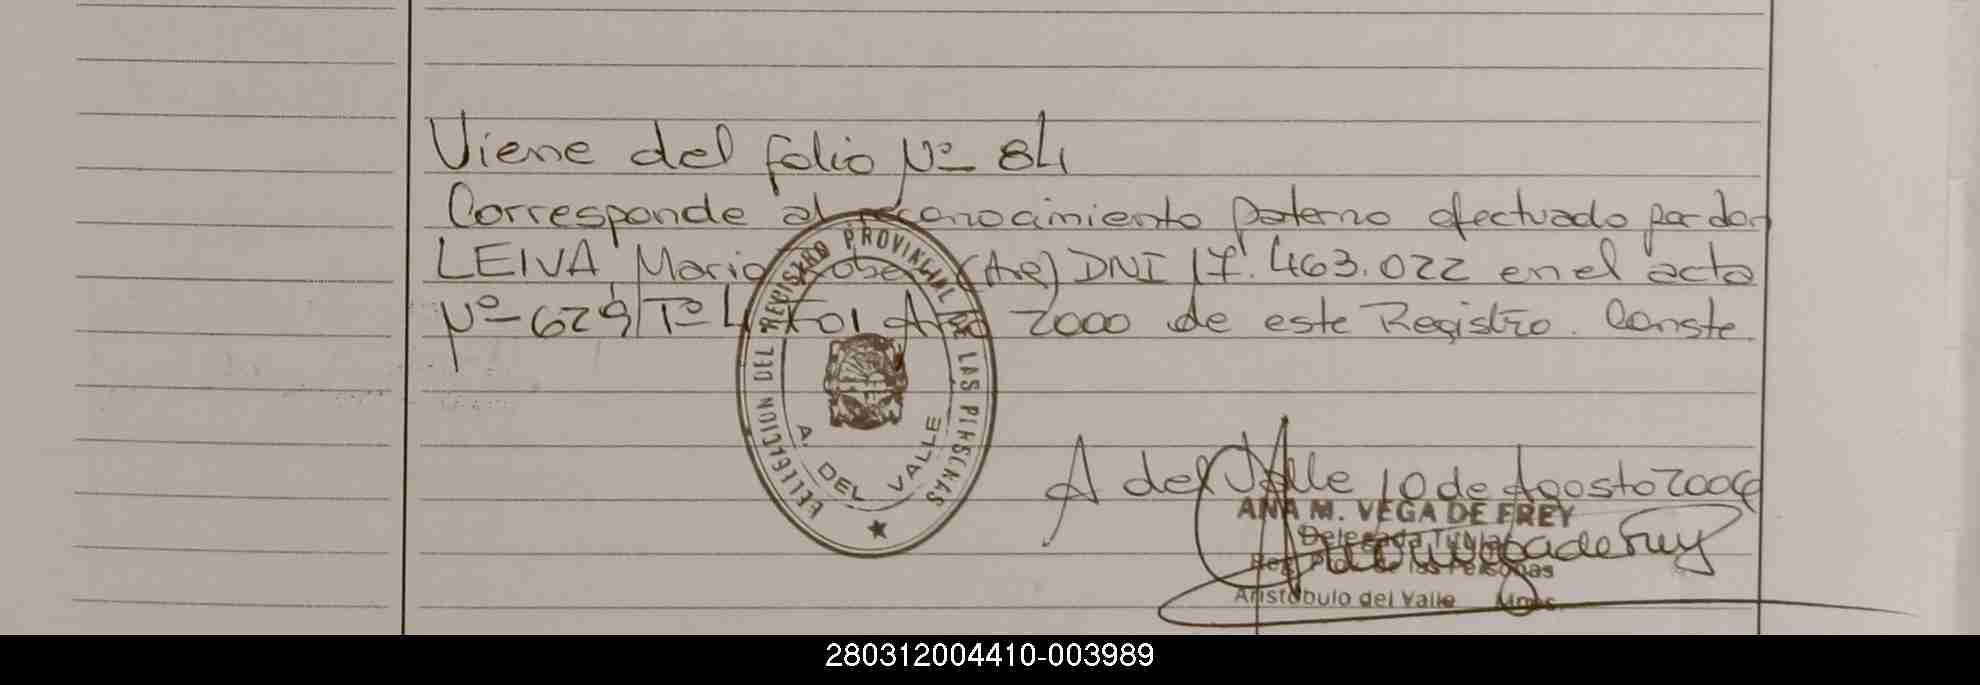 Viene del folio Nº 84
Corresponde al reconocimiento paterno efectuado por don
LEIVA Mario Rober (Arg) DNI 17.463.022 en el acta
Nº 629 Tº 4 Año 2000 de este Registro. Conste.
DELEGACION DEL REGISTRO PROVINCIAL DE LAS PERSONAS
A. DEL VALLE
A del Valle 10 de Agosto 2004
ANA M. VEGA DE FREY
Delegada Titular
Reg. Prov. de las Personas
Aristóbulo del Valle Mnes.
280312004410-003989